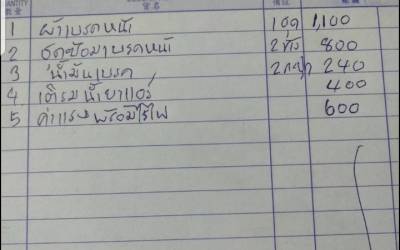 QUANTITY
數量
1 ผ้าเบรคหน้า 1ชุด 1,100
2 ชุดซ่อมเบรคหน้า 2ข้าง 800
3 น้ำมันเบรค 240
4 เติมน้ำยาแอร์ 400
5 ค่าแรงพร้อม 600